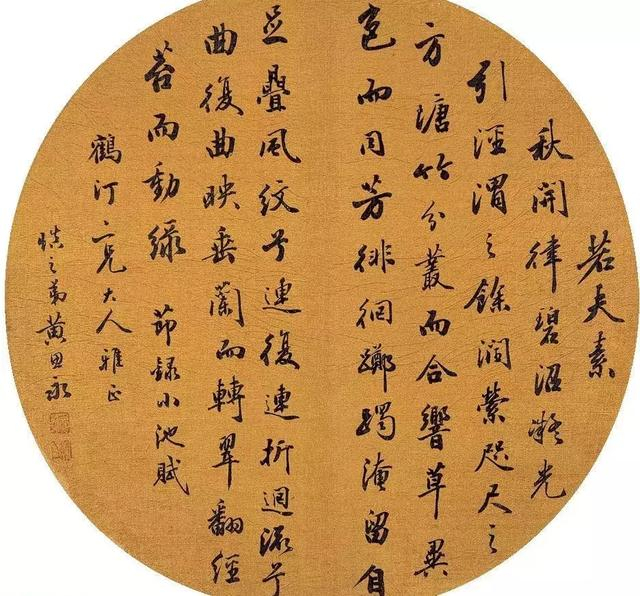 若夫素
秋開律碧沼凝光
引涇渭之餘潤縈咫尺之
方塘竹分叢而合響草異
色而同芳徘徊躑躅淹留自
足疊風紋兮連復連折迴流兮
曲復曲映垂蘭而轉翠翻經
苔而動綠 節錄小池賦
鶴汀二兄大人雅正
慎之弟黃思永